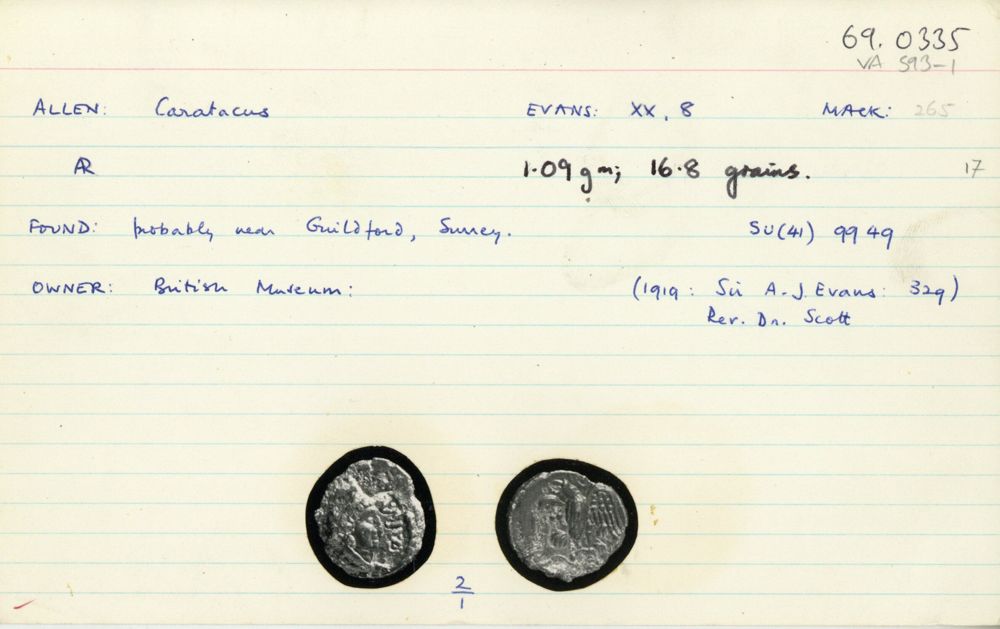 69. 0335
VA 593-1
ALLEN: Caratacus EVANS: XX, 8 MACK: 265
AR 1.09 gm; 16.8 grains. 17
FOUND: probably near Guildford, Surrey. SU(41) 99 49
OWNER: British Museum: (1919: Sir A.J. Evans: 329)
Rev. Dr. Scott
2
1